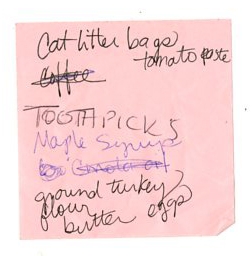 Cat litter bags
tomato paste
coffee
TOOTHPICKS
Maple Syrup
ground turkey
flour
butter eggs